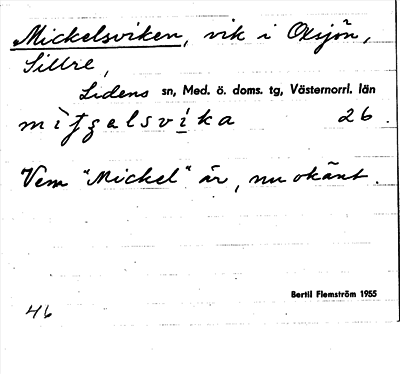 Mickelsviken, vik i Oxsjön,
Sillre,
Lidens sn, Med. ö. doms. tg, Västernorrl. län
26.
Vem "Mickel" är, nu okänt.
Bertil Flemström 1955
46